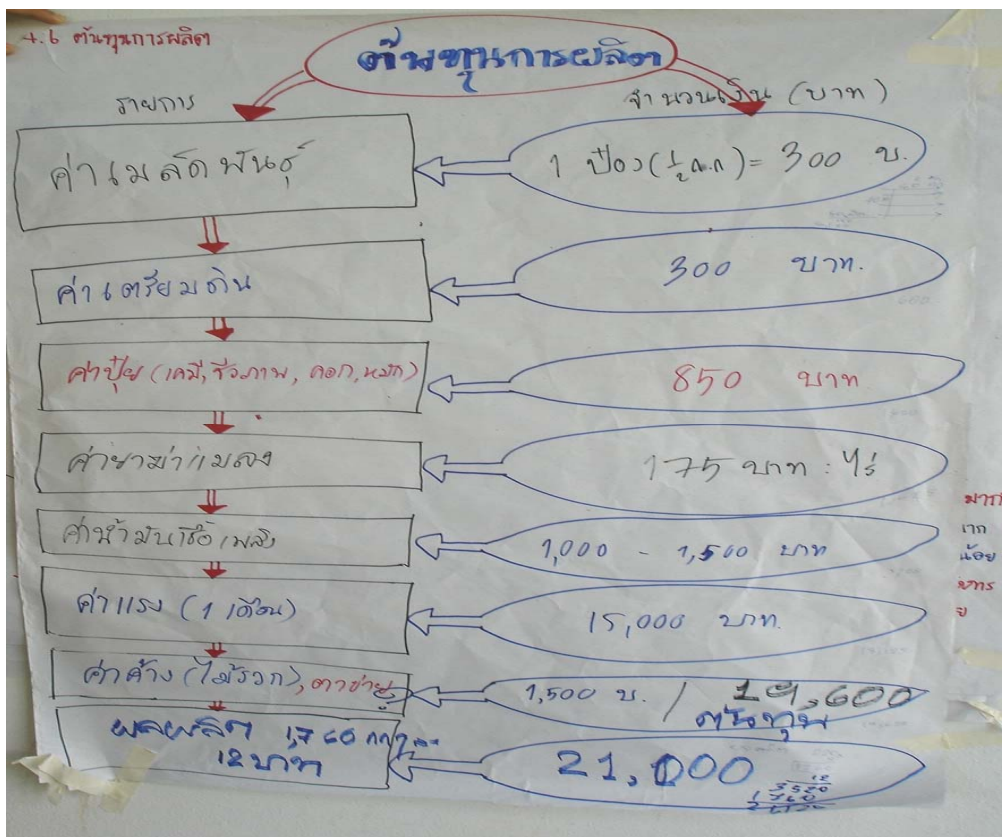 4.6 ต้นทุนการผลิต
ต้นทุนการผลิต
รายการ
จำนวนเงิน (บาท)
ค่าเมล็ดพันธุ์
1 ป๋อง (½ ก.ก) = 300 บ.
ค่าเตรียมดิน
300 บาท.
ค่าปุ๋ย (เคมี, ชีวภาพ, คอก, หมัก)
850 บาท
ค่ายาฆ่าแมลง
175 บาท : ไร่
ค่าน้ำมันเชื้อเพลิง
1,000 - 1,500 บาท
ค่าแรง (1 เดือน)
15,000 บาท.
ค่าค้าง (ไม้รวก), ตาข่าย
1,500 บ. / 19,600
ต้นทุน
ผลผลิต 1,760
12 บาท
21,000
12
3520
1760